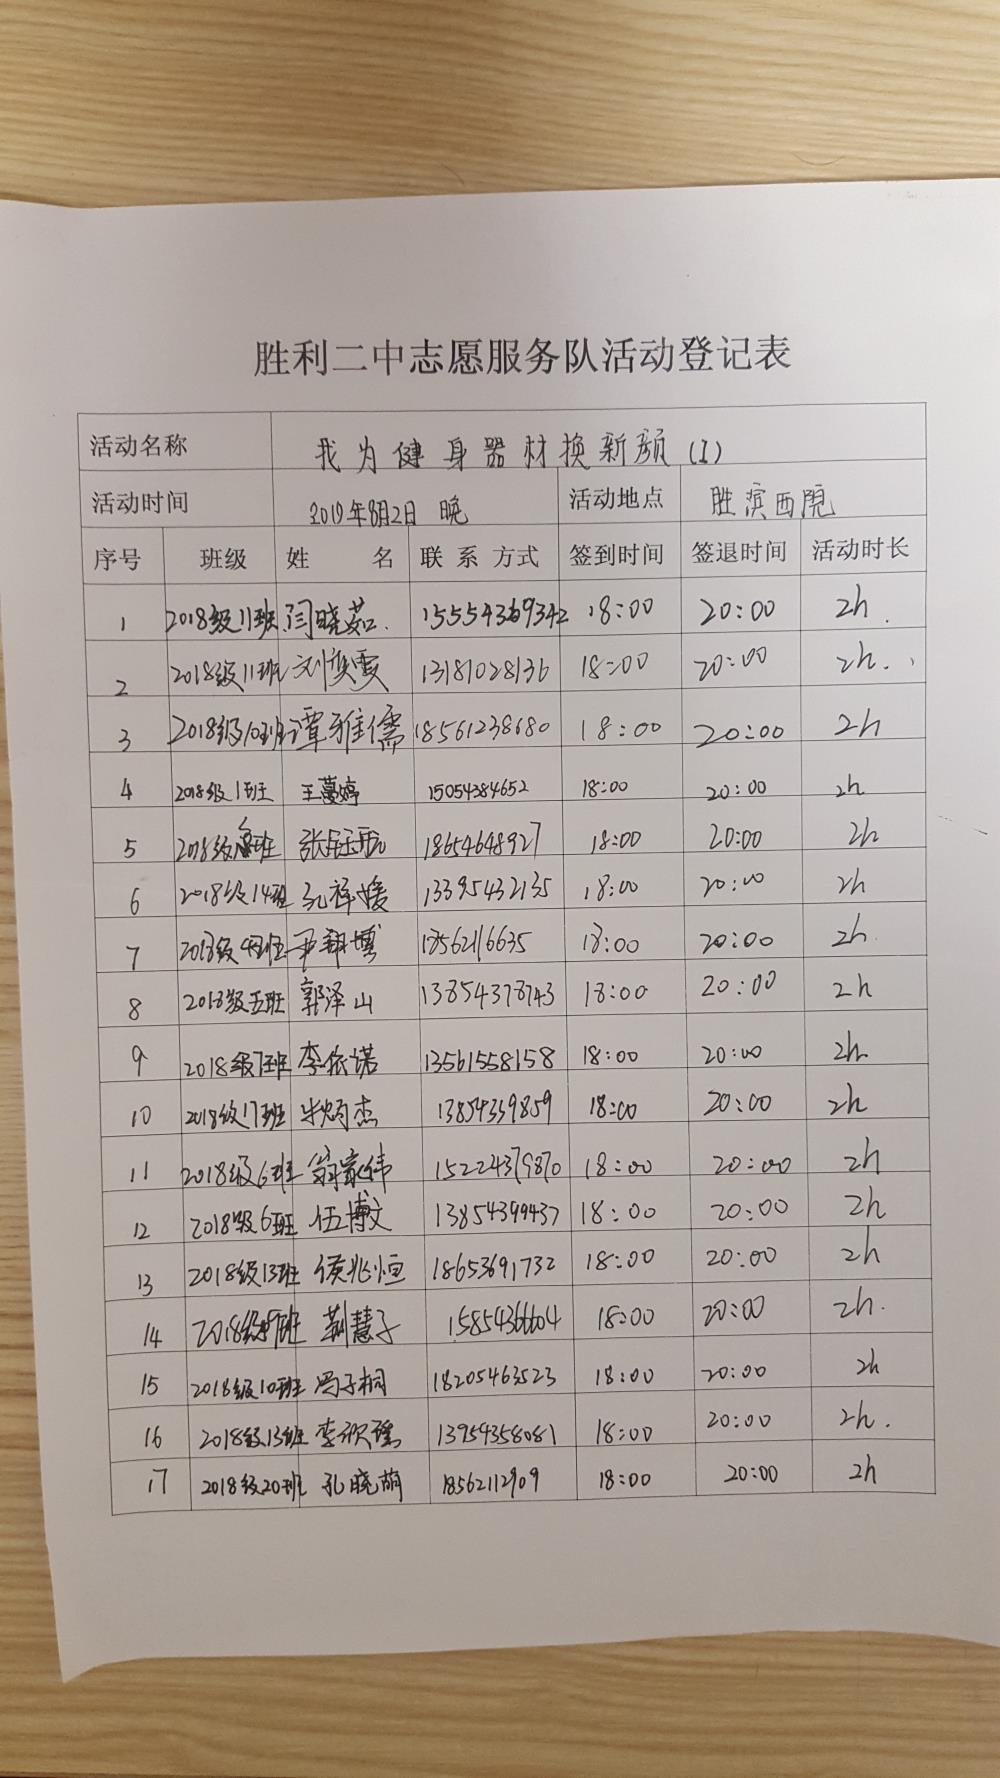 胜利二中志愿服务队活动登记表
活动名称 我为健身器材换新颜(1)
活动时间 2019年8月2日 晚 活动地点 胜滨西院
序号 班级 姓 名 联系方式 签到时间 签退时间 活动时长
1 2018级11班 闫晓茹 15554369342 18:00 20:00 2h.
2 2018级11班 刘雯 13181028136 18:00 20:00 2h.
3 2018级10班 谭雅儒 18561238680 18:00 20:00 2h
4 2018级1班 王蔓婷 15054384652 18:00 20:00 2h
5 2018级 班 张钰 18654648927 18:00 20:00 2h
6 2018级14班 孔祥媛 13395432135 18:00 20:00 2h
7 2018级4班 尹翔博 18562116635 18:00 20:00 2h
8 2018级五班 郭泽山 13854378743 18:00 20:00 2h
9 2018级7班 李依诺 13561558158 18:00 20:00 2h
10 2018级17班 杰 13854339859 18:00 20:00 2h
11 2018级6班 翁家伟 15224379870 18:00 20:00 2h
12 2018级6班 伍博文 13854399437 18:00 20:00 2h
13 2018级13班 侯兆恒 18653691732 18:00 20:00 2h
14 2018级 班 荆慧子 15854366604 18:00 20:00 2h.
15 2018级10班 冯子桐 18205463523 18:00 20:00 2h
16 2018级13班 李欣瑶 13954358081 18:00 20:00 2h.
17 2018级20班 孔晓萌 18562112909 18:00 20:00 2h